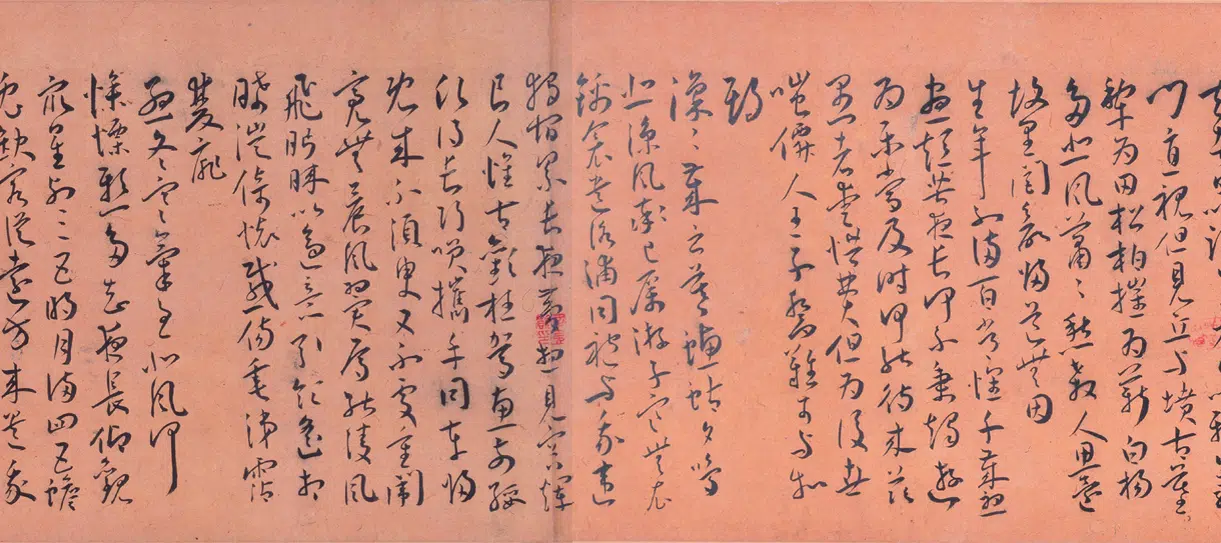 門直視但見丘与墳古墓
犂為田松柏摧為薪白楊
多悲風蕭〻愁殺人思還
故里閭欲歸道無因
生年不滿百常懷千歲憂
晝短苦夜長何不秉燭遊
為樂當及時何能待來茲
愚者愛惜費但為後世
嗤僊人王子喬難可与相
期
凜〻歲云暮螻蛄夕鳴
悲涼風率已厲游子寒無衣
錦衾遺洛浦同袍与我違
獨宿累長夜夢想見容輝
良人惟古歡枉駕惠前綏
願得長巧咲攜手同車歸
既來不須臾又不處重闈
亮無晨風翼焉能淩風
飛眄睞以適意引領遙相
睎徙倚懷感傷垂涕霑
雙扉
孟冬寒氣至北風何
慘慄愁多知夜長仰觀
衆星列三五明月滿四五蟾
兔缺客從遠方來遺我